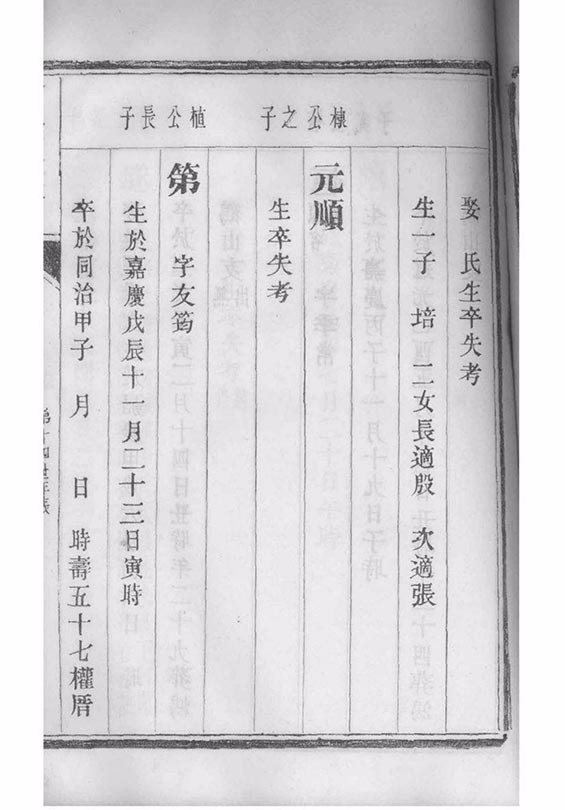 娶 氏生卒失考
生一子 培 二女長適殷 次適張
公之子
元順
生卒失考
植公長子
第 字友筠
生於嘉慶戊辰十一月二十三日寅時
卒於同治甲子 月 日 時壽五十七權厝
第十四世年表